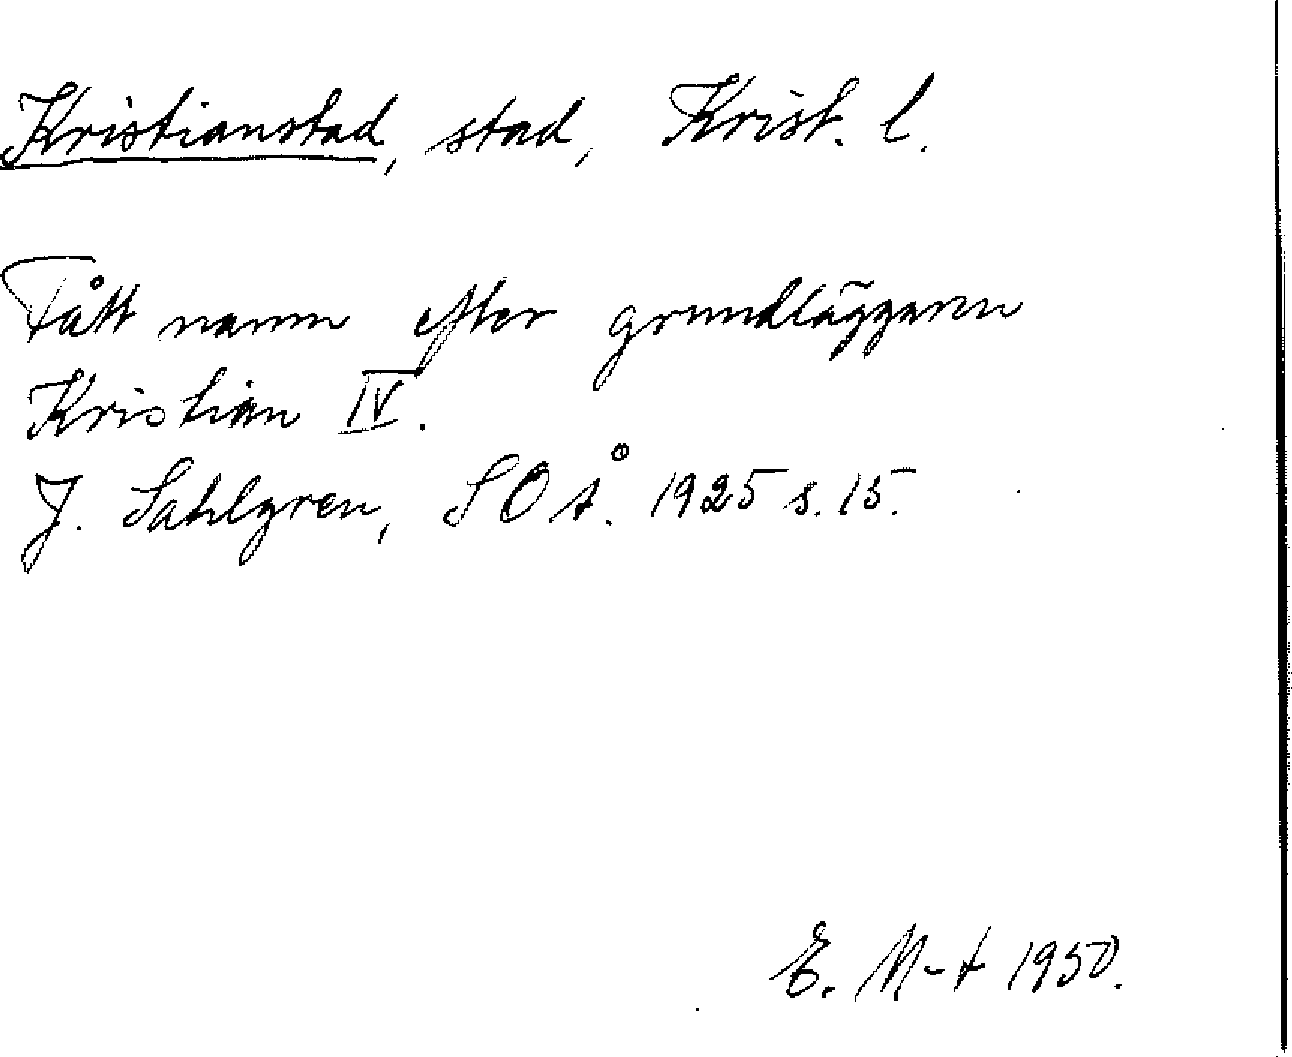 Kristianstad, stad, Krist. l.
Fått namn efter grundläggaren
Kristian IV.
J. Sahlgren, SOÅ. 1925 s. 15.
E. M-t 1950.